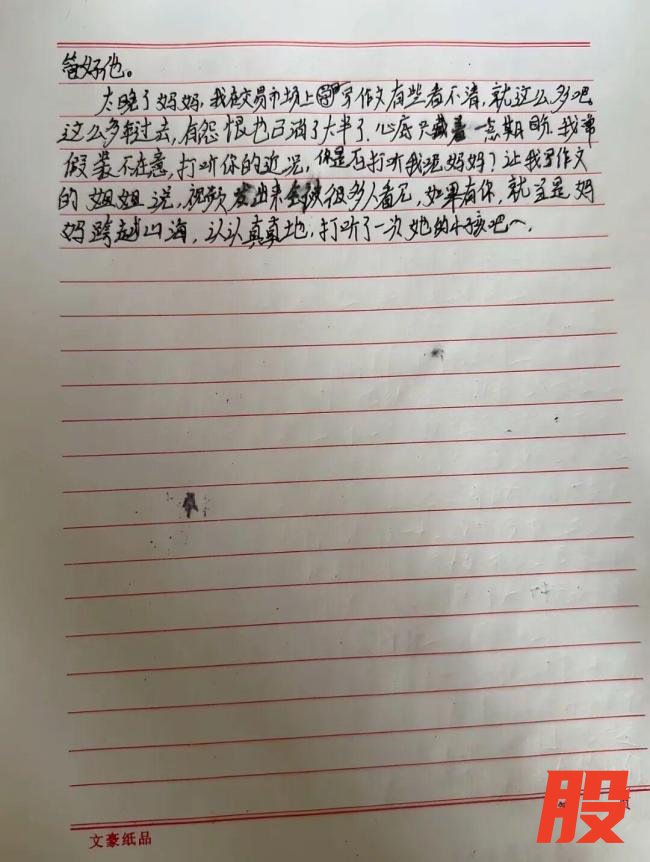 管好他。
太晚了妈妈,我在交易市场上写作文有些看不清,就这么多吧
这么多年过去,有怨恨也已消了大半了.心底只藏着一点期盼.我常
假装不在意,打听你的近况,你是否打听我呢妈妈?让我写作文
的姐姐说,视频发出来会被很多人看见,如果有你,就当是妈
妈跨越山海,认认真真地,打听了一次她的小孩吧~.
股
页
文豪纸品